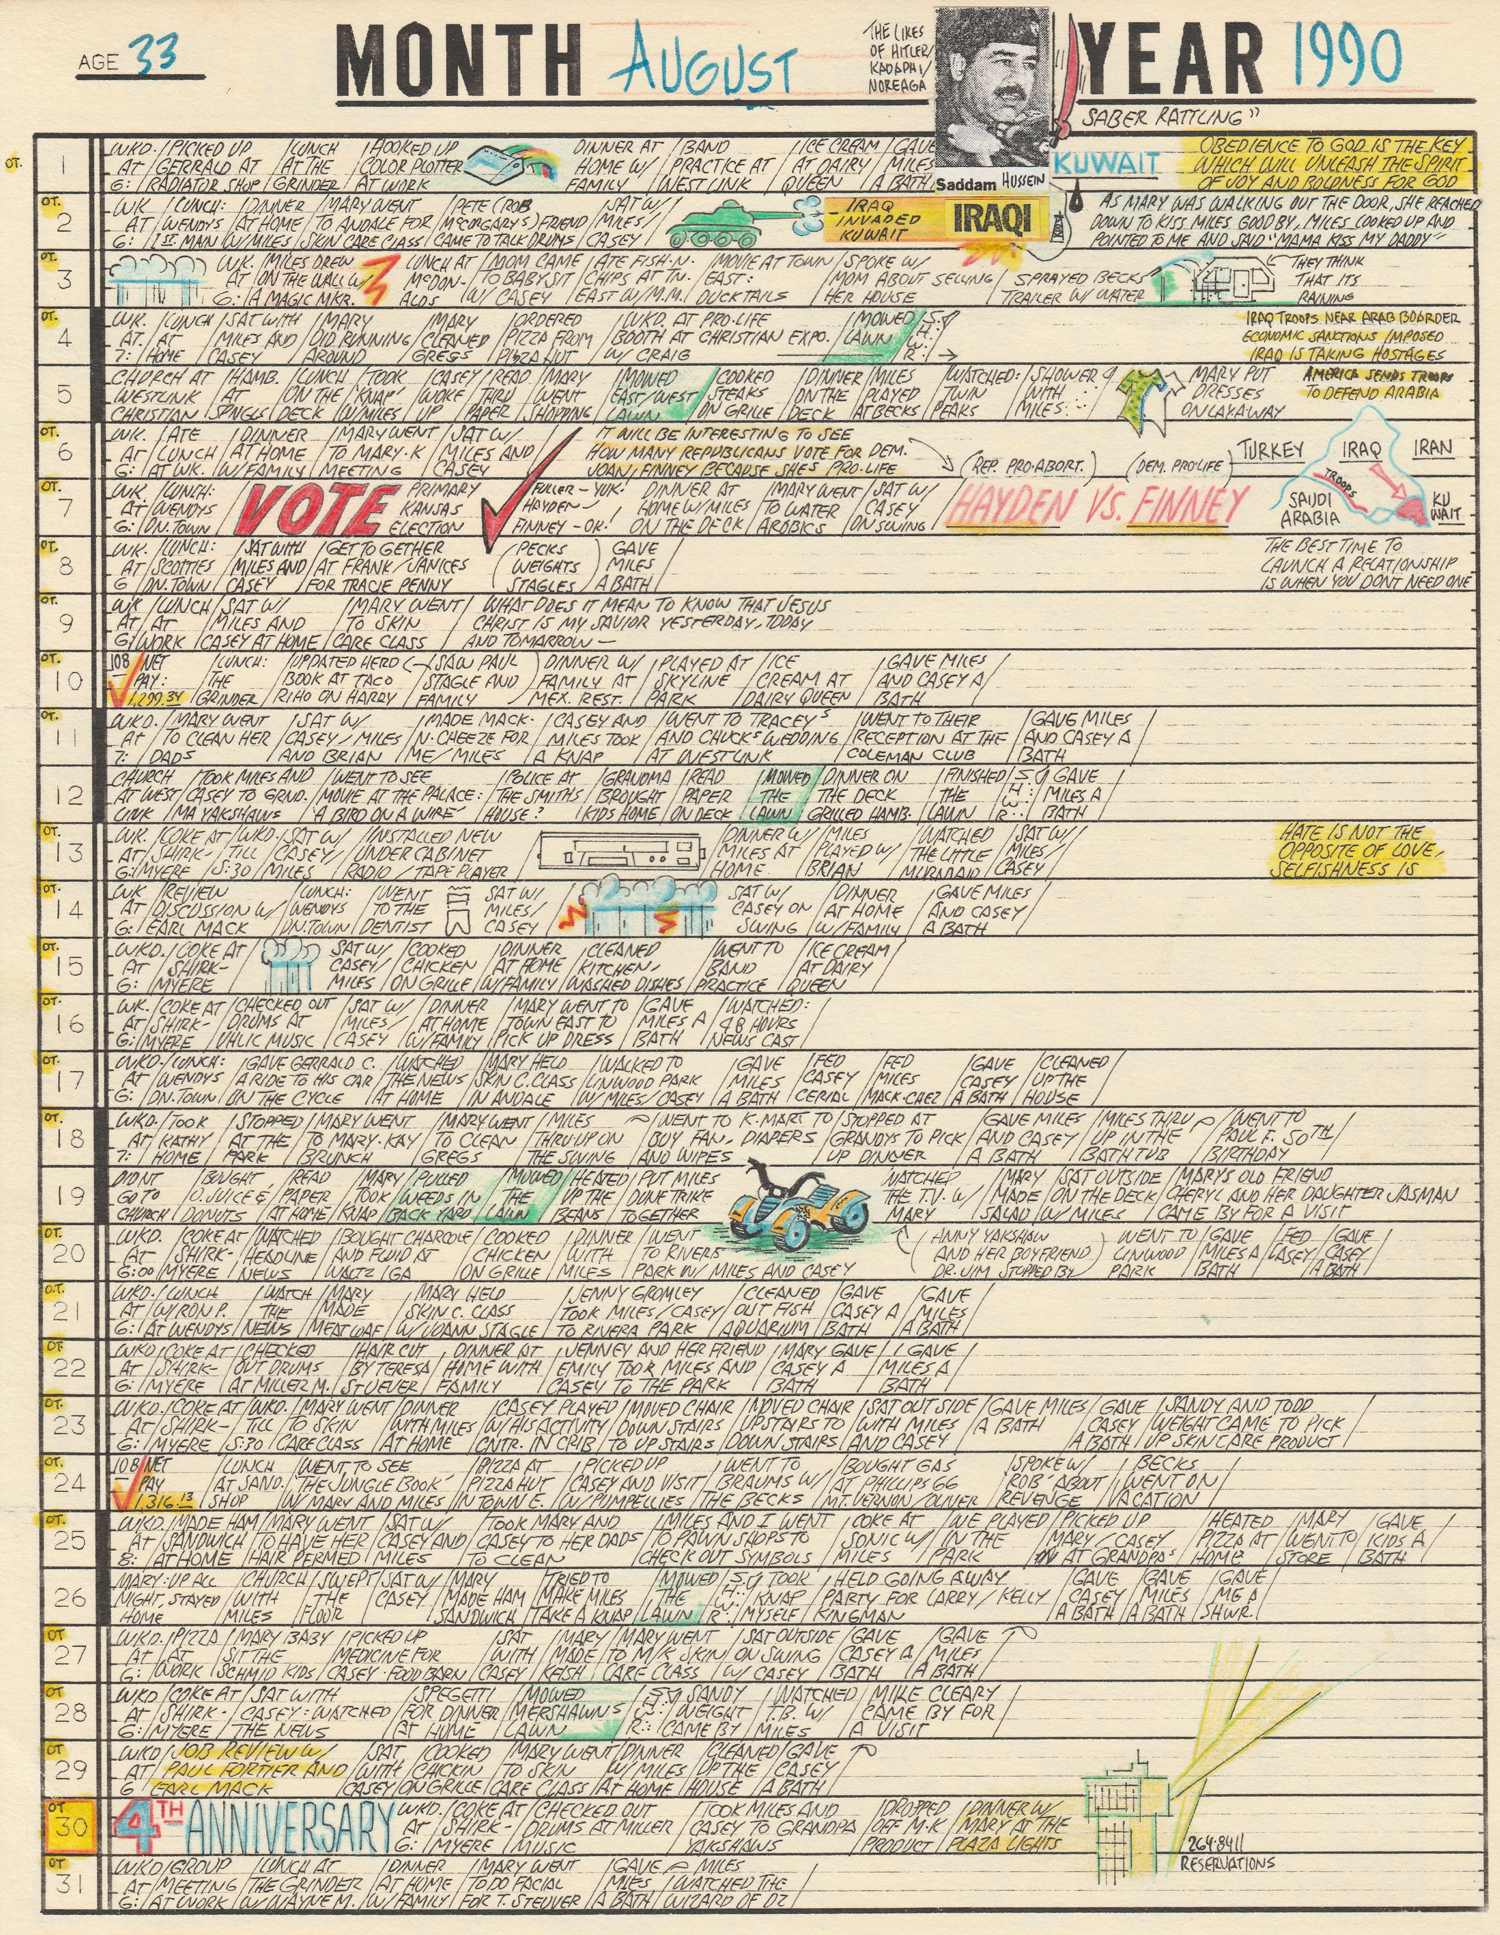 AGE 33
MONTH AUGUST
THE LIKES
OF HITLER/
KADAPHI/
NOREAGA
YEAR 1990
SABER RATTLING"
Saddam HUSSEIN
IRAQI
KUWAIT
OT.
1
WKD. /PICKED UP /LUNCH /HOOKED UP DINNER AT /BAND /ICE CREAM /GAVE
AT /GERRALD AT /AT THE /COLOR PLOTTER HOME W/ /PRACTICE AT /AT DAIRY /MILES
6: /RADIATOR SHOP /GRINDER /AT WORK FAMILY /WESTLINK /QUEEN /A BATH
OBEDIENCE TO GOD IS THE KEY
WHICH WILL UNLEASH THE SPIRIT
OF JOY AND BOLDNESS FOR GOD
OT.
2
WK /LUNCH: /DINNER /MARY WENT /PETE (ROB /SAT W/
AT /WENDYS /AT HOME /TO ANDALE FOR /McGORGARY'S) FRIEND /MILES/
6: /1ST MAN /W/MILES /SKIN CARE CLASS /CAME TO TALK DRUMS /CASEY
IRAQ
INVADED
KUWAIT
AS MARY WAS WALKING OUT THE DOOR, SHE REACHED
DOWN TO KISS MILES GOODBY, MILES LOOKED UP AND
POINTED TO ME AND SAID "MAMA KISS MY DADDY"
OT.
3
WK. /MILES DREW LUNCH AT /MOM CAME /ATE FISH-N- /MOVIE AT TOWN /SPOKE W/
AT /ON THE WALL W/ McDON- /TO BABYSIT /CHIPS AT TN. /EAST: /MOM ABOUT SELLING /SPRAYED BECKS
6: /A MAGIC MKR. ALDS /W/ CASEY /EAST W/M.M. /DUCKTAILS /HER HOUSE /TRAILER W/ WATER
THEY THINK
THAT ITS
RAINING
OT.
4
WK. /LUNCH /SAT WITH /MARY /MARY /ORDERED /WKD. AT PRO-LIFE /MOWED /SHWR.
AT. /AT /MILES AND /DID RUNNING /CLEANED /PIZZA FROM /BOOTH AT CHRISTIAN EXPO. /LAWN
7: /HOME /CASEY /AROUND /GREGS /PIZZA HUT /W/ CRAIG
IRAQ TROOPS NEAR ARAB BOARDER
ECONOMIC SANCTIONS IMPOSED
IRAQ IS TAKING HOSTAGES
5
CHURCH AT /HAMB. /LUNCH /TOOK /CASEY /READ /MARY /MOWED /COOKED /DINNER /MILES /WATCHED: /SHOWER MARY PUT
WESTLINK /AT /ON THE /"KNAP" /WOKE /THRU /WENT /EAST/WEST /STEAKS /ON THE /PLAYED /TWIN /WITH DRESSES
CHRISTIAN /SPNGLS /DECK /W/MILES /UP /PAPER /SHOPPING /LAWN /ON GRILLE /DECK /AT BECKS /PEAKS /MILES ON LAYAWAY
AMERICA SENDS TROOPS
TO DEFEND ARABIA
OT.
6
WK. /ATE /DINNER /MARY WENT /SAT W/
AT /LUNCH /AT HOME /TO MARY-K /MILES AND
6: /AT WK. /W/FAMILY /MEETING /CASEY
IT WILL BE INTERESTING TO SEE
HOW MANY REPUBLICANS VOTE FOR DEM.
JOAN, FINNEY BECAUSE SHES PRO-LIFE
(REP. PRO-ABORT.) (DEM. PRO-LIFE)
TURKEY IRAQ IRAN
TROOPS
SAUDI
ARABIA
KU
WAIT
OT.
7
WK. /LUNCH: PRIMARY FULLER - YUK! DINNER AT /MARY WENT /SAT W/
AT /WENDYS VOTE KANSAS HAYDEN- HOME W/MILES /TO WATER /CASEY HAYDEN VS. FINNEY
6: /DN.TOWN ELECTION FINNEY - OK! ON THE DECK /AROBICS /ON SWING
OT.
8
WK. /LUNCH: /SAT WITH /GET TO GETHER (PECKS) GAVE
AT /SCOTTIES /MILES AND /AT FRANK/JANICES (WEIGHTS) MILES
6 /DN.TOWN /CASEY /FOR TRACIE PENNY (STAGLES) A BATH
THE BEST TIME TO
LAUNCH A RELATIONSHIP
IS WHEN YOU DONT NEED ONE
OT.
9
WK /LUNCH /SAT W/ /MARY WENT / WHAT DOES IT MEAN TO KNOW THAT JESUS
AT /AT /MILES AND /TO SKIN CHRIST IS MY SAVIOR YESTERDAY, TODAY
6: /WORK /CASEY AT HOME /CARE CLASS AND TOMARROW -
OT.
10
108 NET /LUNCH: /UPDATED HERO (-/SAW PAUL) /DINNER W/ /PLAYED AT /ICE /GAVE MILES
PAY: /THE /BOOK AT TACO /STAGLE AND /FAMILY AT /SKYLINE /CREAM AT /AND CASEY A
1,299.34 /GRINDER /RIHO ON HARRY /FAMILY /MEX. REST. /PARK /DAIRY QUEEN /BATH
OT.
11
WKD. /MARY WENT /SAT W/ /MADE MACK- /CASEY AND /WENT TO TRACEY'S /WENT TO THEIR /GAVE MILES
AT /TO CLEAN HER /CASEY/MILES /N-CHEEZE FOR /MILES TOOK /AND CHUCK'S WEDDING /RECEPTION AT THE /AND CASEY A
7: /DADS /AND BRIAN /ME/MILES /A KNAP /AT WESTLINK /COLEMAN CLUB /BATH
12
CHURCH /TOOK MILES AND /WENT TO SEE /POLICE AT /GRANDMA /READ /MOWED /DINNER ON /FINISHED /SHWR. /GAVE
AT WEST /CASEY TO GRND. /MOVIE AT THE PALACE: /THE SMITHS /BROUGHT /PAPER /THE /THE DECK /THE /MILES A
LINK /MA YAKSHAWS /'A BIRD ON A WIRE' /HOUSE? /KIDS HOME /ON DECK /LAWN /GRILLED HAMB. /LAWN /BATH
OT.
13
WK. /COKE AT /WKD. /SAT W/ /INSTALLED NEW DINNER W/ /MILES /WATCHED /SAT W/
AT /SHIRK- /TILL /CASEY/ /UNDER CABINET MILES AT /PLAYED W/ /THE LITTLE /MILES/
6: /MYERE /5:30 /MILES /RADIO / TAPE PLAYER HOME. /BRIAN /MURMAID /CASEY
HATE IS NOT THE
OPPOSITE OF LOVE,
SELFISHNESS IS
OT.
14
WK /REVIEW /LUNCH: /WENT SAT W/ SAT W/ /DINNER /GAVE MILES
AT /DISCUSSION W/ /WENDYS /TO THE MILES/ CASEY ON /AT HOME /AND CASEY
6: /EARL MACK /DN.TOWN /DENTIST CASEY SWING /W/FAMILY /A BATH
OT.
15
WKD. /COKE AT SAT W/ /COOKED /DINNER /CLEANED /WENT TO /ICE CREAM
AT /SHIRK- CASEY/ /CHICKEN /AT HOME /KITCHEN/ /BAND /AT DAIRY
6: /MYERE MILES /ON GRILLE /W/FAMILY /WASHED DISHES /PRACTICE /QUEEN
OT.
16
WK. /COKE AT /CHECKED OUT /SAT W/ /DINNER /MARY WENT TO /GAVE /WATCHED:
AT /SHIRK- /DRUMS AT /MILES/ /AT HOME /TOWN EAST TO /MILES A /48 HOURS
6: /MYERE /UHLIC MUSIC /CASEY /W/FAMILY /PICK UP DRESS /BATH /NEWS CAST
OT.
17
WKD. /LUNCH: /GAVE GERRALD C. /WATCHED /MARY HELD /WALKED TO /GAVE /FED /FED /GAVE /CLEANED
AT /WENDYS /A RIDE TO HIS CAR /THE NEWS /SKIN C. CLASS /LINWOOD PARK /MILES /CASEY /MILES /CASEY /UP THE
6: /DN.TOWN /ON THE CYCLE /AT HOME /IN ANDALE /W/MILES/CASEY /A BATH /CERIAL /MACK-CHEZ /A BATH /HOUSE
OT.
18
WKD. /TOOK /STOPPED /MARY WENT /MARY WENT /MILES /WENT TO K-MART TO /STOPPED AT /GAVE MILES /MILES THRU /WENT TO
AT /KATHY /AT THE /TO MARY-KAY /TO CLEAN /THRU-UP ON /BUY FAN, DIAPERS /GRANDYS TO PICK /AND CASEY /UP IN THE /PAUL F. 50TH
7: /HOME /PARK /BRUNCH /GREGS /THE SWING /AND WIPES /UP DINNER /A BATH /BATH TUB /BIRTHDAY
19
DIDNT /BOUGHT /READ /MARY /PULLED /MOWED /HEATED /PUT MILES WATCHED /MARY /SAT OUTSIDE /MARYS OLD FRIEND
GO TO /O.JUICE & /PAPER /TOOK /WEEDS IN /THE /UP THE /DUNE TRIKE THE T.V. W/ /MADE /ON THE DECK /CHERYL AND HER DAUGHTER JASMAN
CHURCH /DONUTS /AT HOME /KNAP /BACK YARD /LAWN /BEANS /TOGETHER MARY /SALAD /W/ MILES /CAME BY FOR A VISIT
OT.
20
WKD. /COKE AT /WATCHED /BOUGHT CHARCOLE /COOKED /DINNER /WENT (ANNY YAKSHAW) WENT TO /GAVE /FED /GAVE
AT /SHIRK- /HEADLINE /AND FLUID AT /CHICKEN /WITH /TO RIVERS (AND HER BOYFRIEND) LINWOOD /MILES A /CASEY /CASEY
6:00 /MYERE /NEWS /WALTZ / GA /ON GRILLE /MILES /PARK W/ MILES AND CASEY (DR. JIM STOPPED BY) PARK /BATH /A BATH
O.T.
21
WKD. /LUNCH /WATCH /MARY /MARY HELD /JENNY GROMLEY /CLEANED /GAVE /GAVE
AT /W/RON P. /THE /MADE /SKIN C. CLASS /TOOK MILES/CASEY /OUT FISH /CASEY A /MILES
6: /AT WENDYS /NEWS /MEAT LOAF /W/ JOANN STAGLE /TO RIVERA PARK /AQUARIUM /BATH /A BATH
OT
22
WKD /COKE AT /CHECKED /HAIR CUT /DINNER AT /JENNEY AND HER FRIEND /MARY GAVE /I GAVE
AT /SHIRK- /OUT DRUMS /BY TERESA /HOME WITH /EMILY TOOK MILES AND /CASEY A /MILES A
6: /MYERE /AT MILLER M. /STUEVER /FAMILY /CASEY TO THE PARK /BATH /BATH
OT.
23
WKD. /COKE AT /WKD. /MARY WENT /DINNER /CASEY PLAYED /MOVED CHAIR /MOVED CHAIR /SAT OUT SIDE /GAVE MILES /GAVE /SANDY AND TODD
AT /SHIRK- /TILL /TO SKIN /WITH MILES /W/ HIS ACTIVITY /DOWN STAIRS /UPSTAIRS TO /WITH MILES /A BATH /CASEY /WEIGHT CAME TO PICK
6: /MYERE /5:30 /CARE CLASS /AT HOME /CNTR. IN CRIB /TO UP STAIRS /DOWN STAIRS /AND CASEY /A BATH /UP SKIN CARE PRODUCT
OT.
24
108 NET /LUNCH /WENT TO SEE /PIZZA AT /PICKED UP /WENT TO /BOUGHT GAS /SPOKE W/ /BECKS
PAY /AT SAND. /'THE JUNGLE BOOK' /PIZZA HUT /CASEY AND VISIT /BRAUMS W/ /AT PHILLIPS 66 /ROB ABOUT /WENT ON
1,316.13 /SHOP /W/ MARY AND MILES /IN TOWN E. /W/ PUMPELLIES /THE BECKS /MT. VERNON/OLIVER /REVENGE /VACATION
OT.
25
WKD. /MADE HAM /MARY WENT /SAT W/ /TOOK MARY AND /MILES AND I WENT /COKE AT /WE PLAYED /PICKED UP /HEATED /MARY /GAVE
AT /SANDWICH /TO HAVE HER /CASEY AND /CASEY TO HER DADS /TO PAWN SHOPS TO /SONIC W/ /IN THE /MARY / CASEY /PIZZA AT /WENT TO /KIDS A
8: /AT HOME /HAIR PERMED /MILES /TO CLEAN /CHECK OUT SYMBOLS /MILES /PARK /AT GRANDPAS /HOME /STORE /BATH
26
MARY: UP ALL /CHURCH /SWEPT /SAT W/ /MARY /TRIED TO /MOWED /SHWR. /TOOK /HELD GOING AWAY /GAVE /GAVE /GAVE
NIGHT, STAYED /WITH /THE /CASEY /MADE HAM /MAKE MILES /THE /KNAP /PARTY FOR LARRY / KELLY /CASEY /MILES /ME A
HOME /MILES /FLOOR /SANDWICH /TAKE A KNAP /LAWN /MYSELF /KINGMAN /A BATH /A BATH /SHWR.
OT
27
WKD. /PIZZA /MARY BABY /PICKED UP /SAT /MARY /MARY WENT /SAT OUTSIDE /GAVE /GAVE
AT /AT /SIT THE /MEDICINE FOR /WITH /MADE /TO M/K SKIN /ON SWING /CASEY A /MILES
6: /WORK /SCHMID KIDS /CASEY - FOOD BARN /CASEY /KEISH /CARE CLASS /W/ CASEY /BATH /A BATH
OT
28
WKD /COKE AT /SAT WITH /SPEGETTI /MOWED /SHWR. /SANDY /WATCHED /MIKE CLEARY
AT /SHIRK- /CASEY: WATCHED /FOR DINNER /MERSHAWNS /WEIGHT /T.B. W/ /CAME BY FOR
6: /MYERE /THE NEWS /AT HOME /LAWN /CAME BY /MILES /A VISIT
OT
29
WKD /JOB REVIEW W/ /SAT /COOKED /MARY WENT /DINNER /CLEANED /GAVE
AT /PAUL FORTIER AND /WITH /CHICKIN /TO SKIN /W/ MILES /UP THE /CASEY
6 /EARL MACK /CASEY /ON GRILLE /CARE CLASS /AT HOME /HOUSE /A BATH
OT
30
4TH ANNIVERSARY
WKD. /COKE AT /CHECKED OUT /TOOK MILES AND /DROPPED /DINNER W/
AT /SHIRK- /DRUMS AT MILLER /CASEY TO GRANDPA /OFF M-K /MARY AT THE
6: /MYERE /MUSIC /YAKSHAWS /PRODUCT /PLAZA LIGHTS
264-8411
RESERVATIONS
OT
31
WKD /GROUP /LUNCH AT /DINNER /MARY WENT /GAVE /MILES
AT /MEETING /THE GRINDER /AT HOME /TO DO FACIAL /MILES /WATCHED THE
6: /AT WORK /W/ WAYNE M. /W/ FAMILY /FOR T. STEUVER /A BATH /WIZARD OF OZ